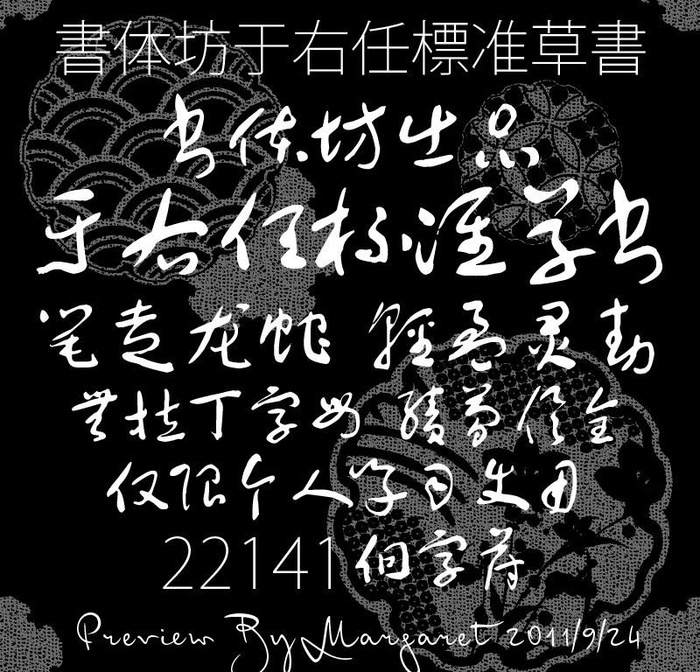 書体坊于右任標准草書
书体坊出品
于右任标准草书
笔走龙蛇 轻盈灵动
無拉丁字母 俱全
仅限个人学习使用
22141個字符
Preview By Margaret 2011/9/24